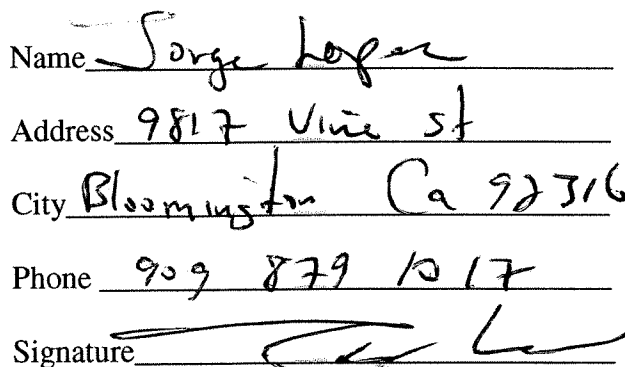 Name Jorge Lopez
Address 9817 Vine st
City Bloomington Ca 92316
Phone 909 879 1017
Signature